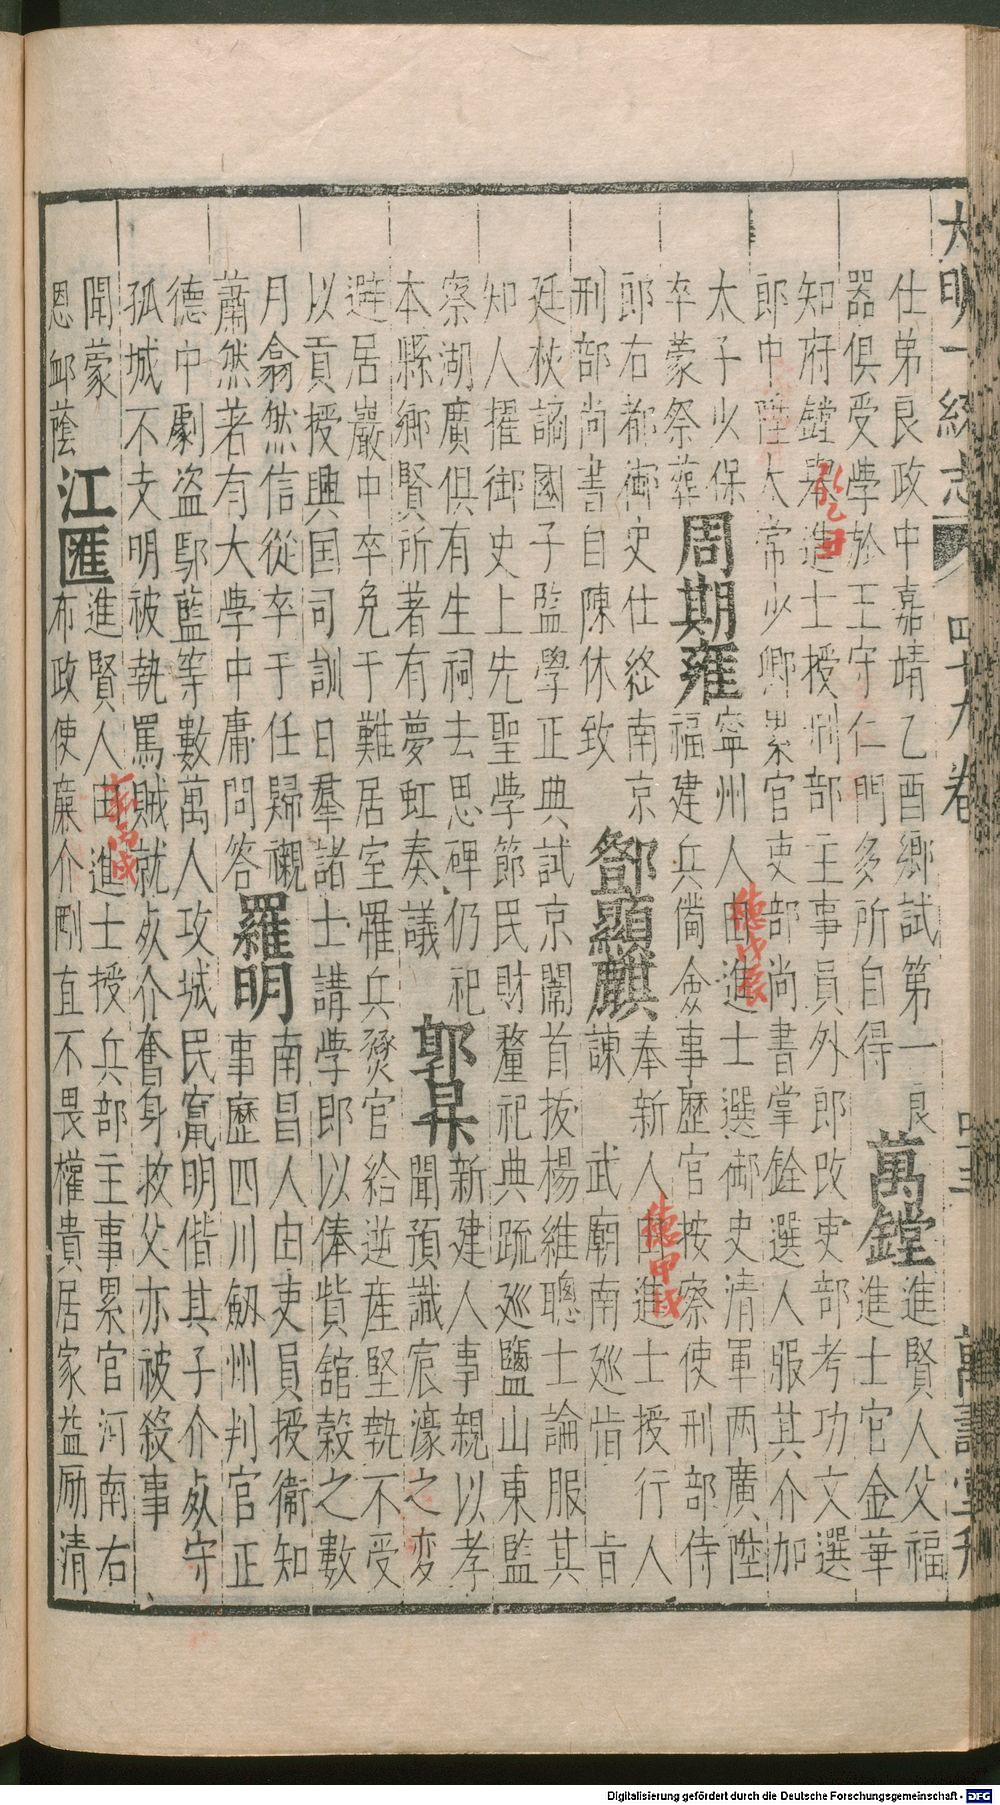 大明一統志 四十九卷 四十三 萬壽堂刊
仕弟良政中嘉靖乙酉鄉試第一良
器俱受學於王守仁門多所自得
萬鏜
進賢人父福
進士官金華
知府鏜舉進士授刑部主事員外郎改吏部考功文選
弘乙丑
郎中陞太常少卿累官吏部尚書掌銓選人服其介加
太子少保
卒蒙祭葬
周期雍
寧州人由進士選御史清軍两廣陞
德戊辰
福建兵備僉事歷官按察使刑部侍
郎右都御史仕終南京
刑部尚書自陳休致
鄧顯麒
奉新人由進士授行人
德甲戌
諫 武廟南廵忤 旨
廷杖謫國子監學正典試京闈首拔楊維聰士論服其
知人擢御史上先聖學節民財釐祀典疏廵鹽山東監
察湖廣俱有生祠去思碑仍祀
本縣鄉賢所著有夢虹奏議
郭昇
新建人事親以孝
聞預識宸濠之変
避居巖中卒免于難居室罹兵燹官給逆産堅執不受
以貢授興国司訓日羣諸士講學即以俸貲舘穀之數
月翕然信從卒于任歸櫬
蕭然著有大學中庸問答
羅明
南昌人由吏員授衛知
事歷四川劔州判官正
德中劇盗鄢藍等數萬人攻城民竄明偕其子介死守
孤城不支明被執罵賊就死介奮身救父亦被殺事
聞蒙
恩卹廕
江匯
進賢人由進士授兵部主事累官河南右
丙戌
布政使廉介剛直不畏權貴居家益励清
Digitalisierung gefördert durch die Deutsche Forschungsgemeinschaft - DFG